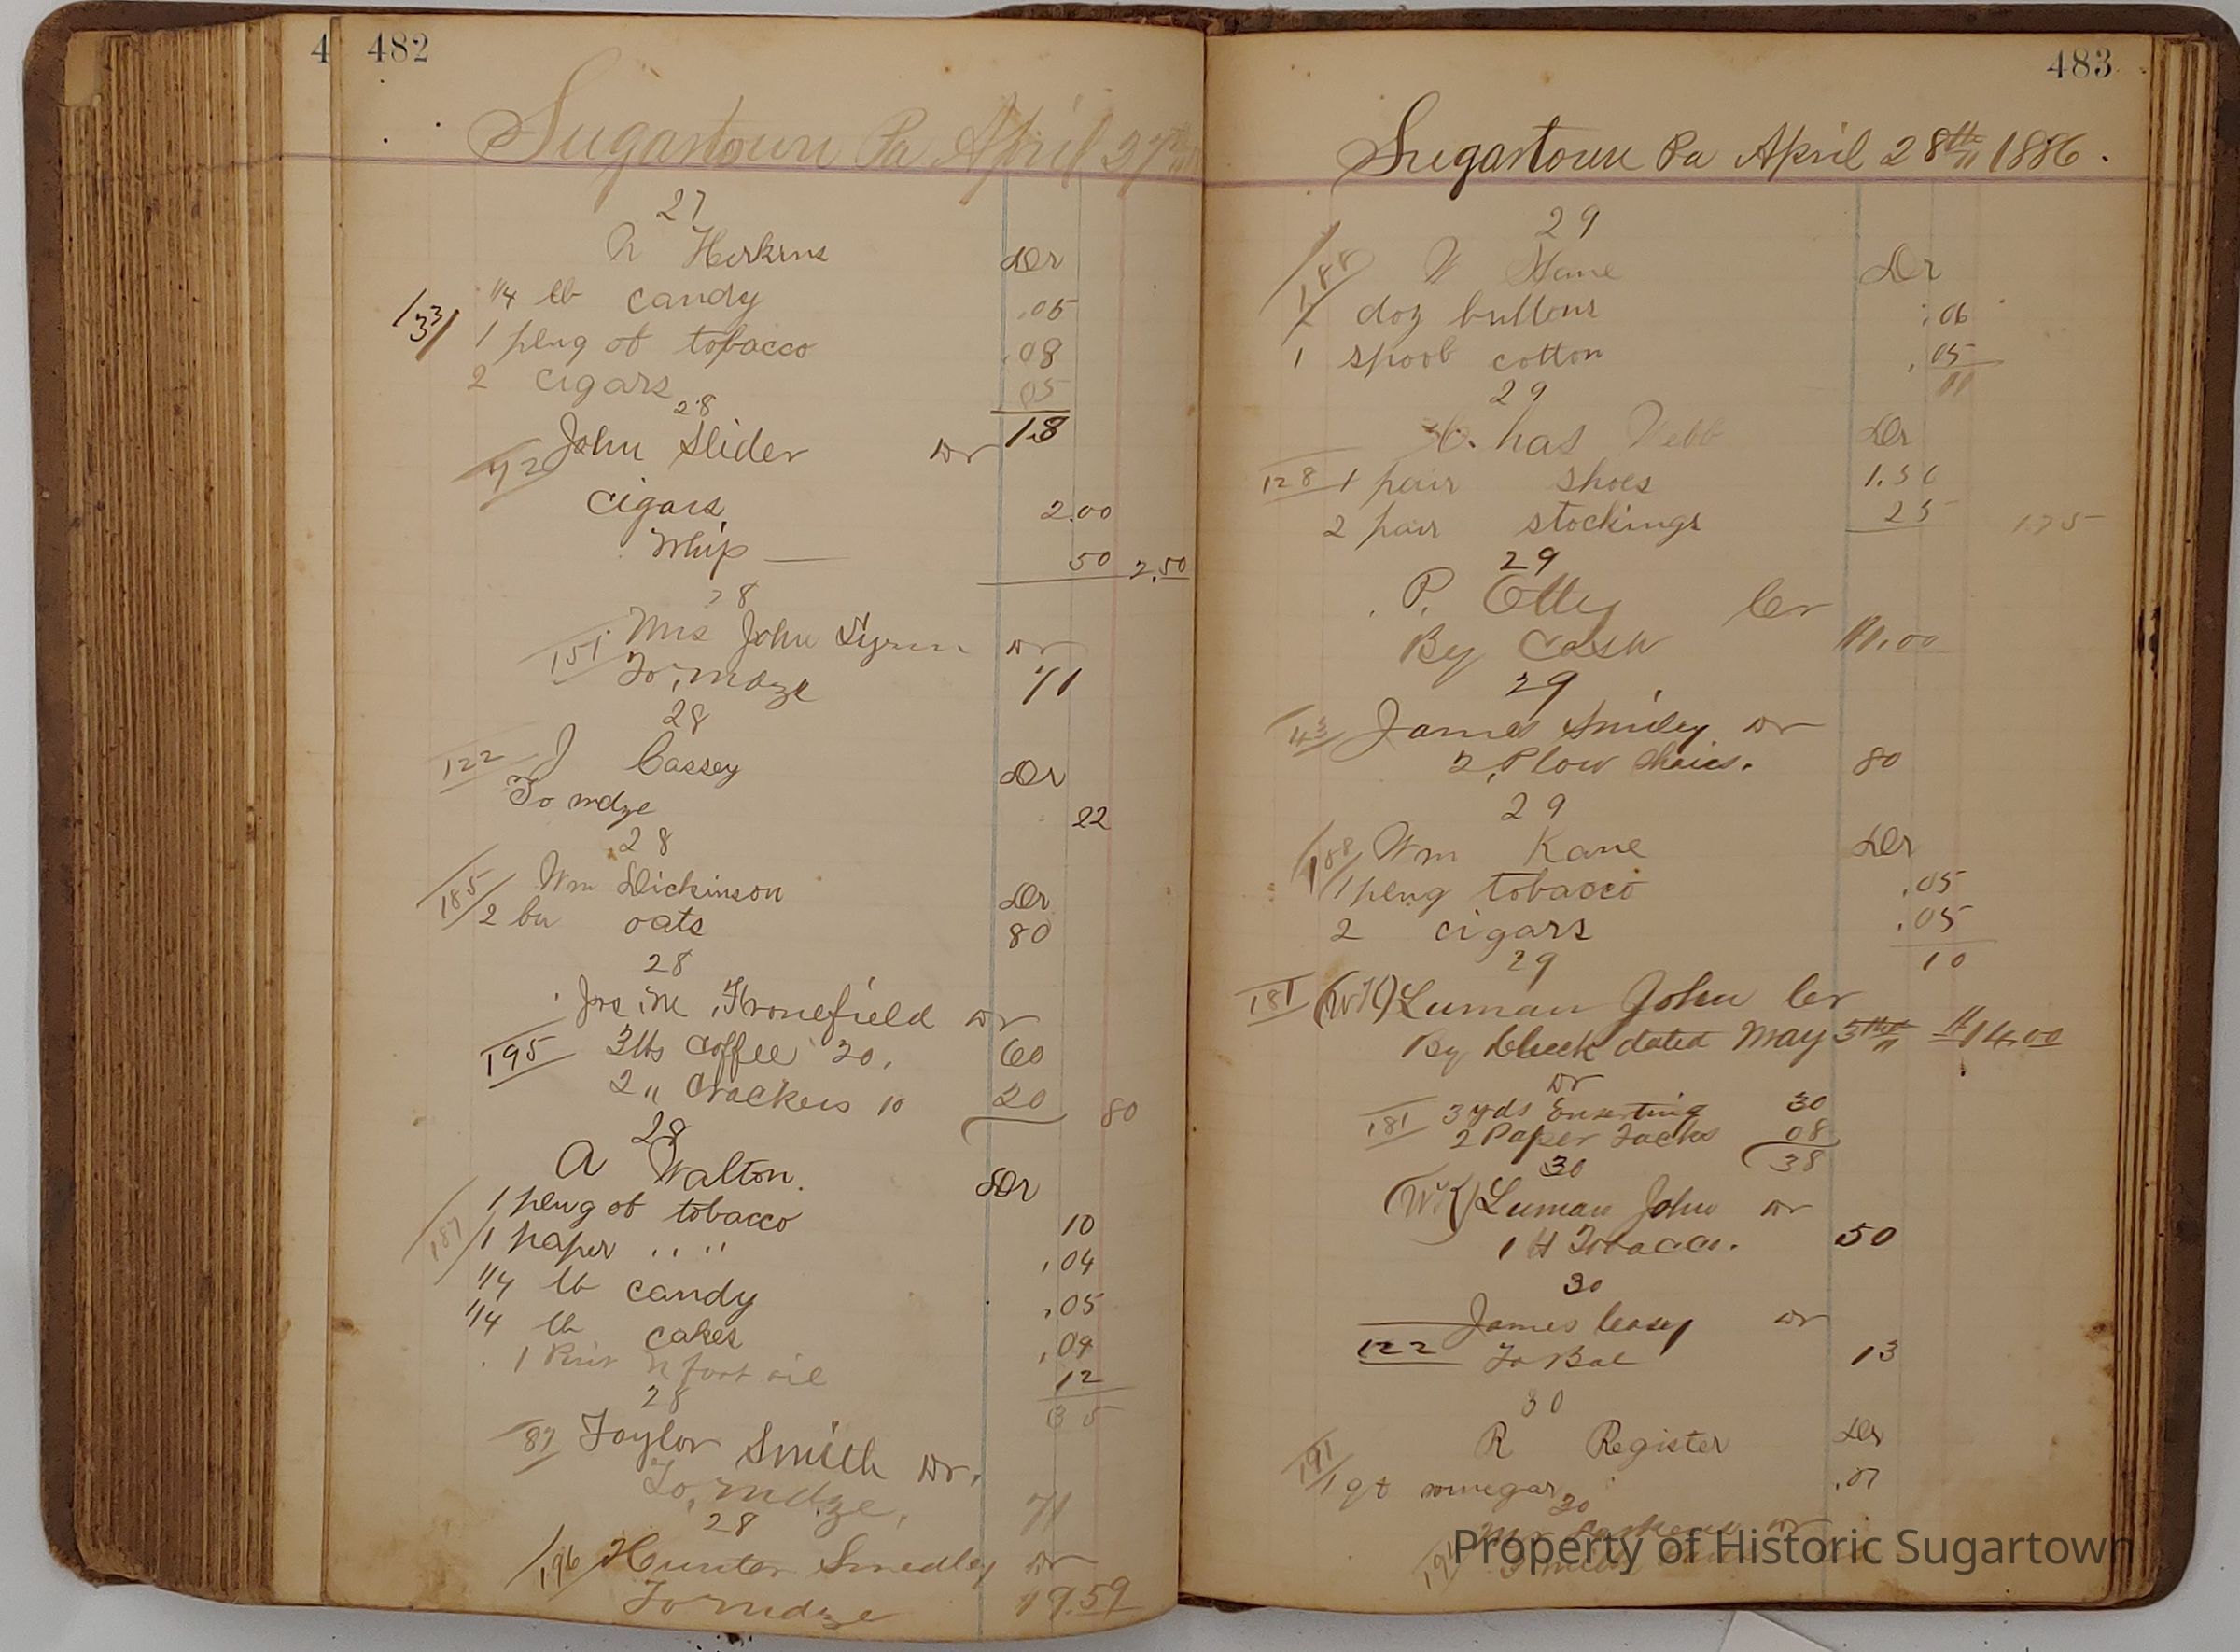 4 482
Sugartown Pa April 27th
27
N Herkins Dr
133 1/4 lb candy .05
1 pleug of tobacco .08
2 cigars 05
18
28
92 John Slider Dr
Cigars 2.00
Whip — 50 2.50
28
151 Mrs John Lynn Dr
To, mdze 71
28
122 J Cassey Dr
To mdze 22
28
185 Wm Dickinson Dr
2 bu oats 80
28
Jos. M. Fronefield Dr
195 3 lbs Coffee 20, 60
2 " Crackers 10 20 80
28
A Walton. Dr
187 1 pleug of tobacco 10
1 paper " " .04
1/4 lb candy .05
1/4 lb cakes .04
1 N foot oil 12
35
28
87 Taylor Smith Dr.
To, mdze, 71
28
196 Hunter Smedley Dr
To mdze 59
483
Sugartown Pa April 28th 1886.
29
188 W Kane Dr
doz buttons .06
1 spool cotton .05
11
29
Chas Webb Dr
128 1 pair shoes 1.50
2 pair stockings 25 1.75
29
P. Ottey Cr
By Cash 11.00
29
43 James Smiley Dr
2 Plow Shaies. 80
29
188 Wm Kane Dr
1 pleug tobacco .05
2 cigars .05
10
29
181 (WH) Luman John Cr
By Check dated May 5th 14.00
Dr
181 3 yds Enserting 30
2 Paper Tacks 08
38
30
Luman John Dr
1 lb Tobacco. 50
30
James Casey Dr
122 To Bal 13
30
R Register Dr
191 1 qt vinegar .07
30
Dr
Property of Historic Sugartown